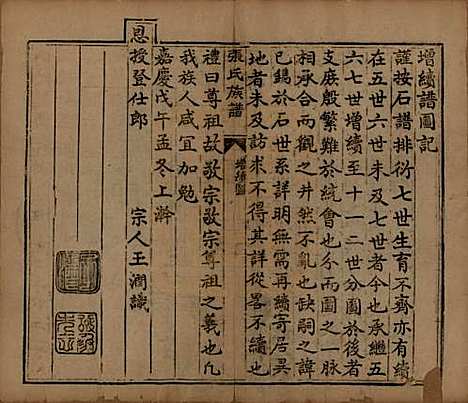 增續譜圖記
謹按石譜排衍七世生育不齊亦有續
在五世六世未及七世者今也承繼五
六七世增續至十一二世分圖於後者
支庶殷繁難於統會也分而圖之一脉
相承合而觀之井然不亂也缺嗣之諱
已錫於石世系詳明無需再續寄居異
地者未及訪求不得其詳從畧不續也
張氏族譜
增續圖
禮曰尊祖故敬宗敬宗尊祖之義也凡
我族人咸宜加勉
嘉慶戊午孟冬上澣
恩授登仕郎
宗人王澗識